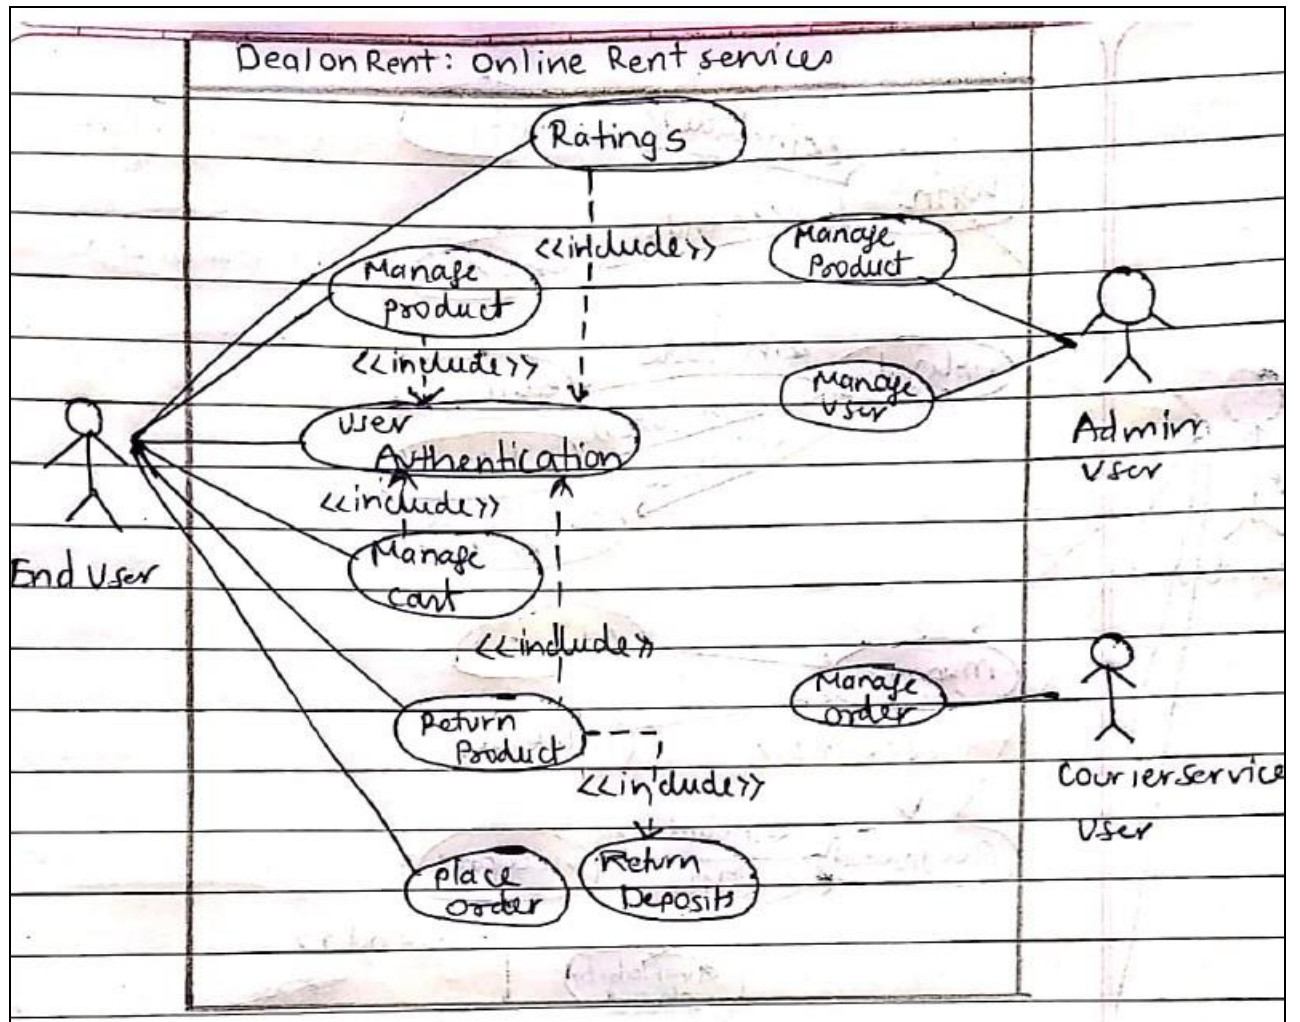 DealonRent: Online Rent services
Ratings
<<include>>
Manage
Product
Manage
product
<<include>>
Manage
User
User
Authentication
Admin
User
<<include>>
Manage
cart
End User
<<include>>
Manage
order
Return
Product
Courierservice
User
<<include>>
place
order
Return
Deposits